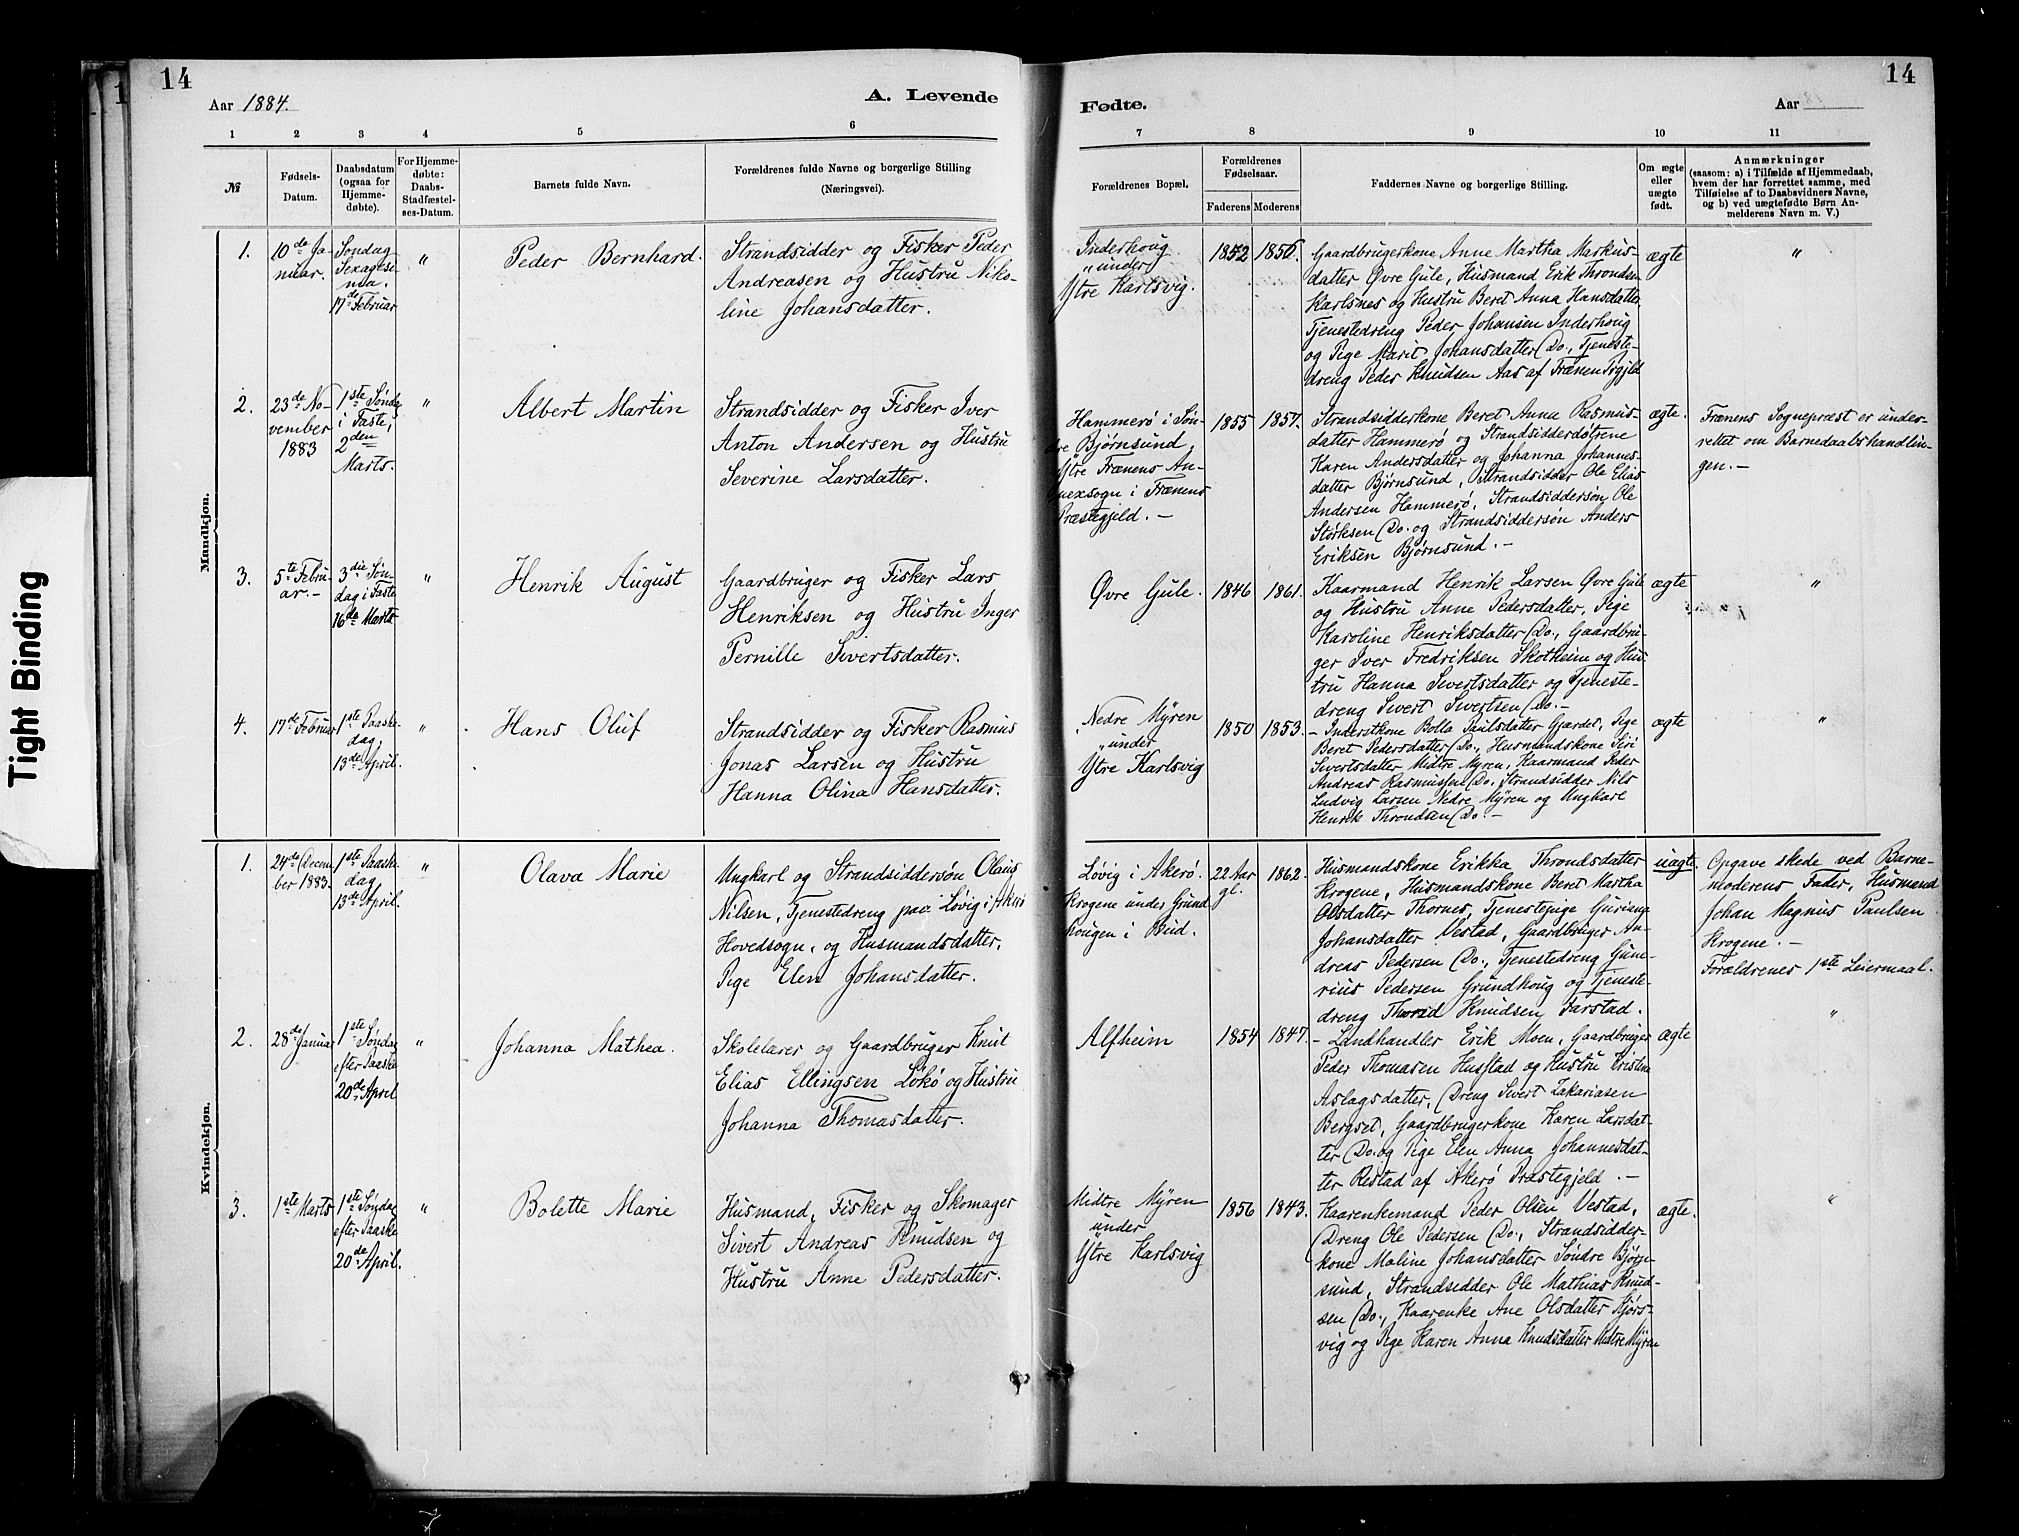 14
14
Aar 1884.
A. Levende
Fødte.
Aar
1
2
3
4
5
6
7
8
9
10
11
№
Fødsels-
Datum.
Daabsdatum
(ogsaa for
Hjemme-
døbte).
For Hjemme-
døbte:
Daabs-
Stadfæstel-
ses-Datum.
Barnets fulde Navn.
Forældrenes fulde Navne og borgerlige Stilling
(Næringsvei).
Forældrenes Bopæl.
Forældrenes
Fødselsaar.
Faderens
Moderens
Faddernes Navne og borgerlige Stilling.
Om ægte
eller
uægte
født.
Anmærkninger
(saasom: a) i Tilfælde af Hjemmedaab,
hvem der har forrettet samme, med
Tilføielse af to Daabsvidners Navne,
og b) ved uægtefødte Børn An-
melderens Navn m. V.)
Mandkjøn.
1.
10de Ja-
nuar.
Søndag
Sexagesi-
ma.
17de Februar
"
Peder Bernhard.
Strandsidder og Fisker Peder
Andreasen og Hustru Niko-
line Johansdatter.
Inderhoug
"under"
Ytre Karlsvig.
1852
1856.
Gaardbrugerkone Anne Martha Markus-
datter Øvre Gule, Husmand Erik Throndsen
Karlsnes og Hustru Beret Anna Hansdatter,
Tjenestedreng Peder Johansen Inderhoug
og Pige Marit Johansdatter Do., Tjeneste-
dreng Peder Knudsen Aas af Frænen Prgjld
ægte
"
2.
23de No-
vember
1883
1ste Søndag
i Faste,
2den
Marts.
"
Albert Martin
Strandsidder og Fisker Iver
Anton Andersen og Hustru
Severine Larsdatter.
Hammerø i Søn-
dre Bjørnsund,
Ytre Frænens An-
nexsogn i Frænens
Præstegjeld. –
1855
1857.
Strandsidderkone Beret Anna Rasmus-
datter Hammerø og Strandsidderdøtrene
Karen Andersdatter og Johanna Johannes-
datter Bjørnsund, Strandsidder Ole Elias
Andersen Hammerø, Strandsiddersøn Ole
Størksen Do. og Strandsiddersøn Anders
Eriksen Bjørnsund. –
ægte.
Frænens Sognepræst er under-
rettet om Barnedaabshandlin-
gen. –
3.
5te Febru-
ar. –
3die Søn-
dag i Faste
16de Marts
"
Henrik August
Gaardbruger og Fisker Lars
Henriksen og Hustru Inger
Pernille Sivertsdatter.
Øvre Gule.
1846
1861.
Kaarmand Henrik Larsen Øvre Gule
og Hustru Anne Pedersdatter, Pige
Karoline Henriksdatter Do., Gaardbru-
ger Iver Fredriksen Skotheim og Hus-
tru Hanna Sivertsdatter og Tjeneste-
dreng Sivert Sivertsen Do. –
ægte
"
4.
17de Februar
1ste Paaske-
dag,
13de April.
"
Hans Oluf
Strandsidder og Fisker Rasmus
Jonas Larsen og Hustru
Hanna Olina Hansdatter.
Nedre Myren
"under
Ytre Karlsvig
1850
1853.
– Inderstkone Bolla Paulsdatter Gjærdet, Pige
Beret Pedersdatter Do., Husmandskone Siri
Sivertsdatter Midtre Myren, Kaarmand Peder
Andreas Rasmussen Do., Strandsidder Nils
Ludvig Larsen Nedre Myren og Ungkarl
Henrik Throndsen Do. –
ægte
"
Kvindekjøn.
1.
24de Decem-
ber 1883.
1ste Paaske-
dag
13de April.
"
Olava Marie
Ungkarl og Strandsiddersøn Olaus
Nilsen, Tjenestedreng paa Løvig i Akerø
Hovedsogn, og Husmandsdatter,
Pige Elen Johansdatter.
Løvig i Akerø.
Krogene under Grund-
hougen i Bud.
22 Aar
gl.
1862.
Husmandskone Erikka Throndsdatter
Krogene, Husmandskone Beret Martha
Olsdatter Thornes, Tjenestepige Guriana
Johansdatter Vestad, Gaardbruger An-
dreas Pedersen Do., Tjenestedreng Gune-
rius Pedersen Grundhoug og Tjeneste-
dreng Knudsen Farstad.
uægte.
Opgave skede ved Barne-
moderens Fader, Husmand
Johan Magnus Paulsen
Krogene. –
Forældrenes 1ste Leiermaal.
2.
28de Januar
1ste Søndag
efter Paaske
20de April
"
Johanna Mathea.
Skolelærer og Gaardbruger Knut
Elias Ellingsen Løkø og Hustru
Johanna Thomasdatter.
Alfheim
1854
1847.
– Landhandler Erik Moen, Gaardbruger
Peder Thomasen Hustad og Hustru Kristine
Aslagsdatter, Dreng Sivert Zakariasen
Bergset, Gaardbrugerkone Karen Larsdat-
ter Do. og Pige Elen Anna Johannesdat-
ter Restad af Akerø Præstegjeld. –
ægte
"
3.
1ste Marts
1ste Søndag
efter Paaske
20de April.
"
Bolette Marie
Husmand, Fisker og Skomager
Sivert Andreas Knudsen og
Hustru Anne Pedersdatter.
Midtre Myren
"under
Ytre Karlsvig
1856
1843.
Kaarenkemand Peder Olsen Vestad,
Dreng Ole Pedersen Do., Strandsidder-
kone Maline Johansdatter Søndre Bjørn-
sund, Strandsidder Ole Mathias Knud-
sen Do., Kaarenke Ane Olsdatter Kjørs-
vig og Pige Karen Anna Knudsdatter Midtre Myren
ægte.
"
Tight Binding